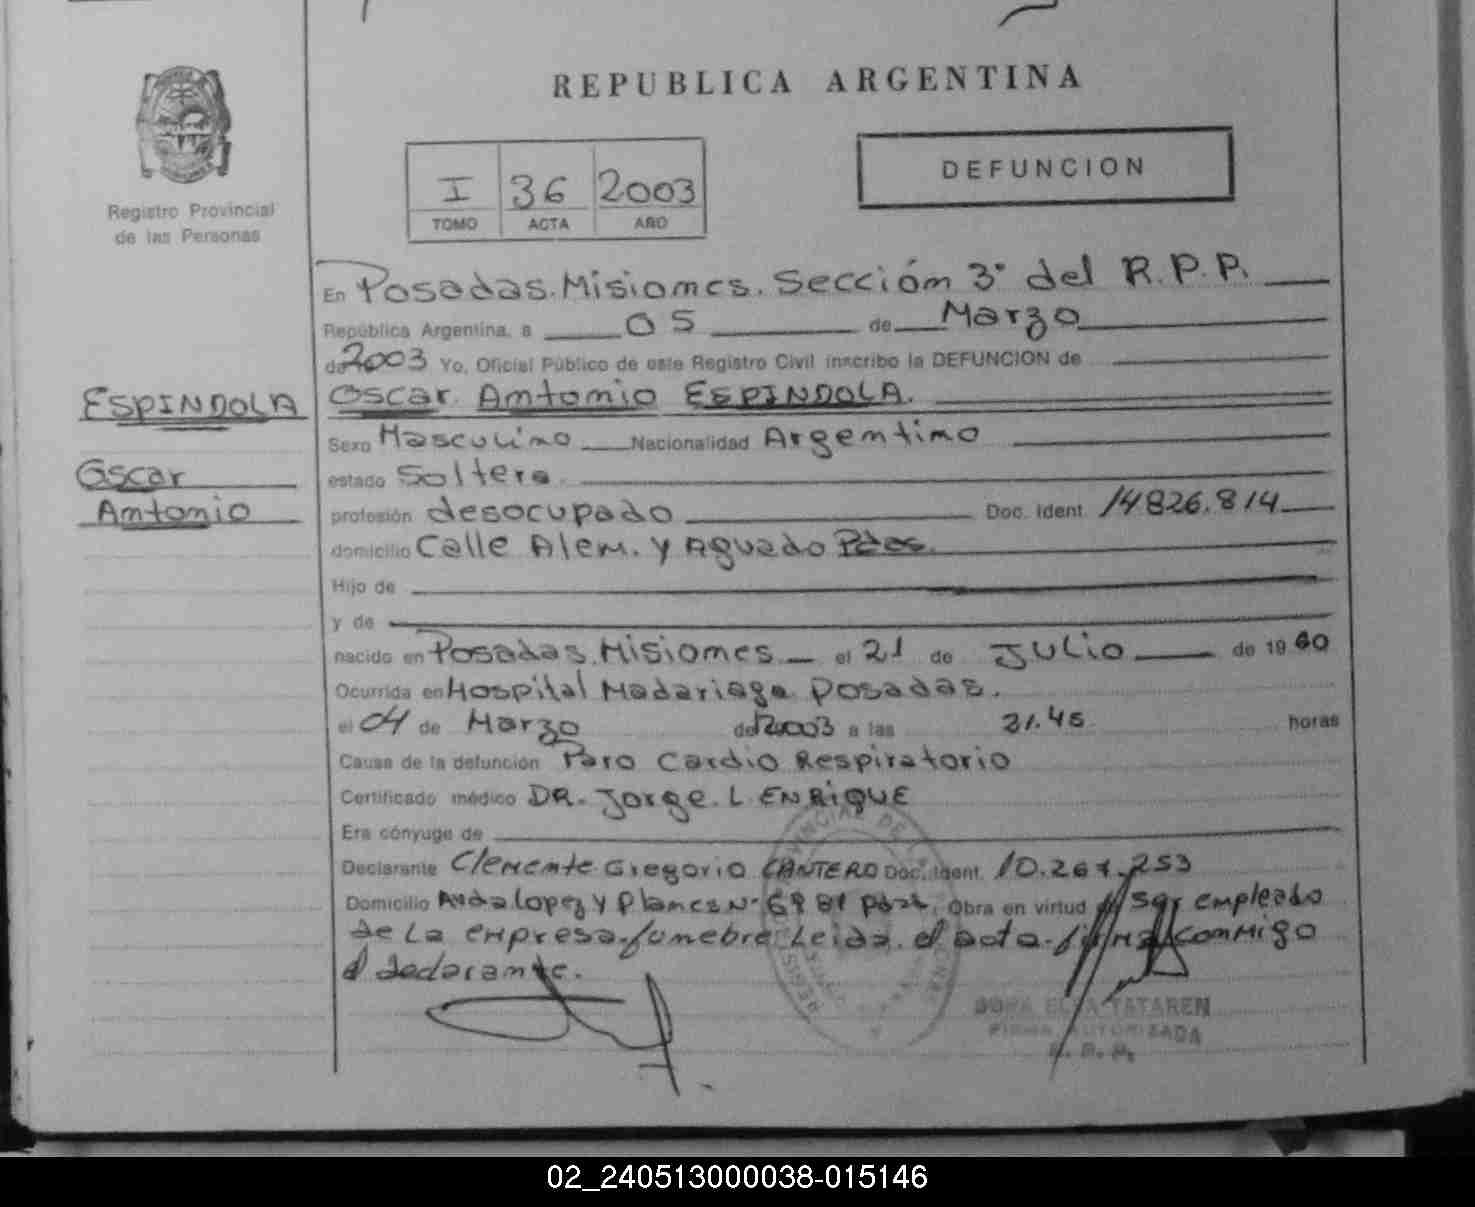 REPUBLICA ARGENTINA
DEFUNCION
I 36 2003
TOMO ACTA AÑO
Registro Provincial
de las Personas
En Posadas. Misiones. Sección 3° del R.P.P.
República Argentina, a 05 de Marzo
de 2003 Yo, Oficial Público de este Registro Civil inscribo la DEFUNCION de
ESPINDOLA
Oscar
Antonio
Oscar Antonio ESPINDOLA.
Sexo Masculino Nacionalidad Argentino
estado Soltero.
profesión desocupado Doc. Ident. 14826.814
domicilio Calle Alem. y Aguado Pdas.
Hijo de
y de
nacido en Posadas. Misiones el 21 de Julio de 1960
Ocurrida en Hospital Madariaga Posadas.
el 04 de Marzo de 2003 a las 21.45 horas
Causa de la defunción Paro Cardio Respiratorio
Certificado médico DR. Jorge. L. ENRIQUE
Era cónyuge de
Declarante Clemente Gregorio CANTERO Doc. Ident. 10.267.253
Domicilio Avda Lopez y Planes N° 6981 Pdas. Obra en virtud de ser empleado
de La empresa funebre Leida. el acta firma conmigo
el declarante.
TATAREN
FIRMA AUTORIZADA
02_240513000038-015146